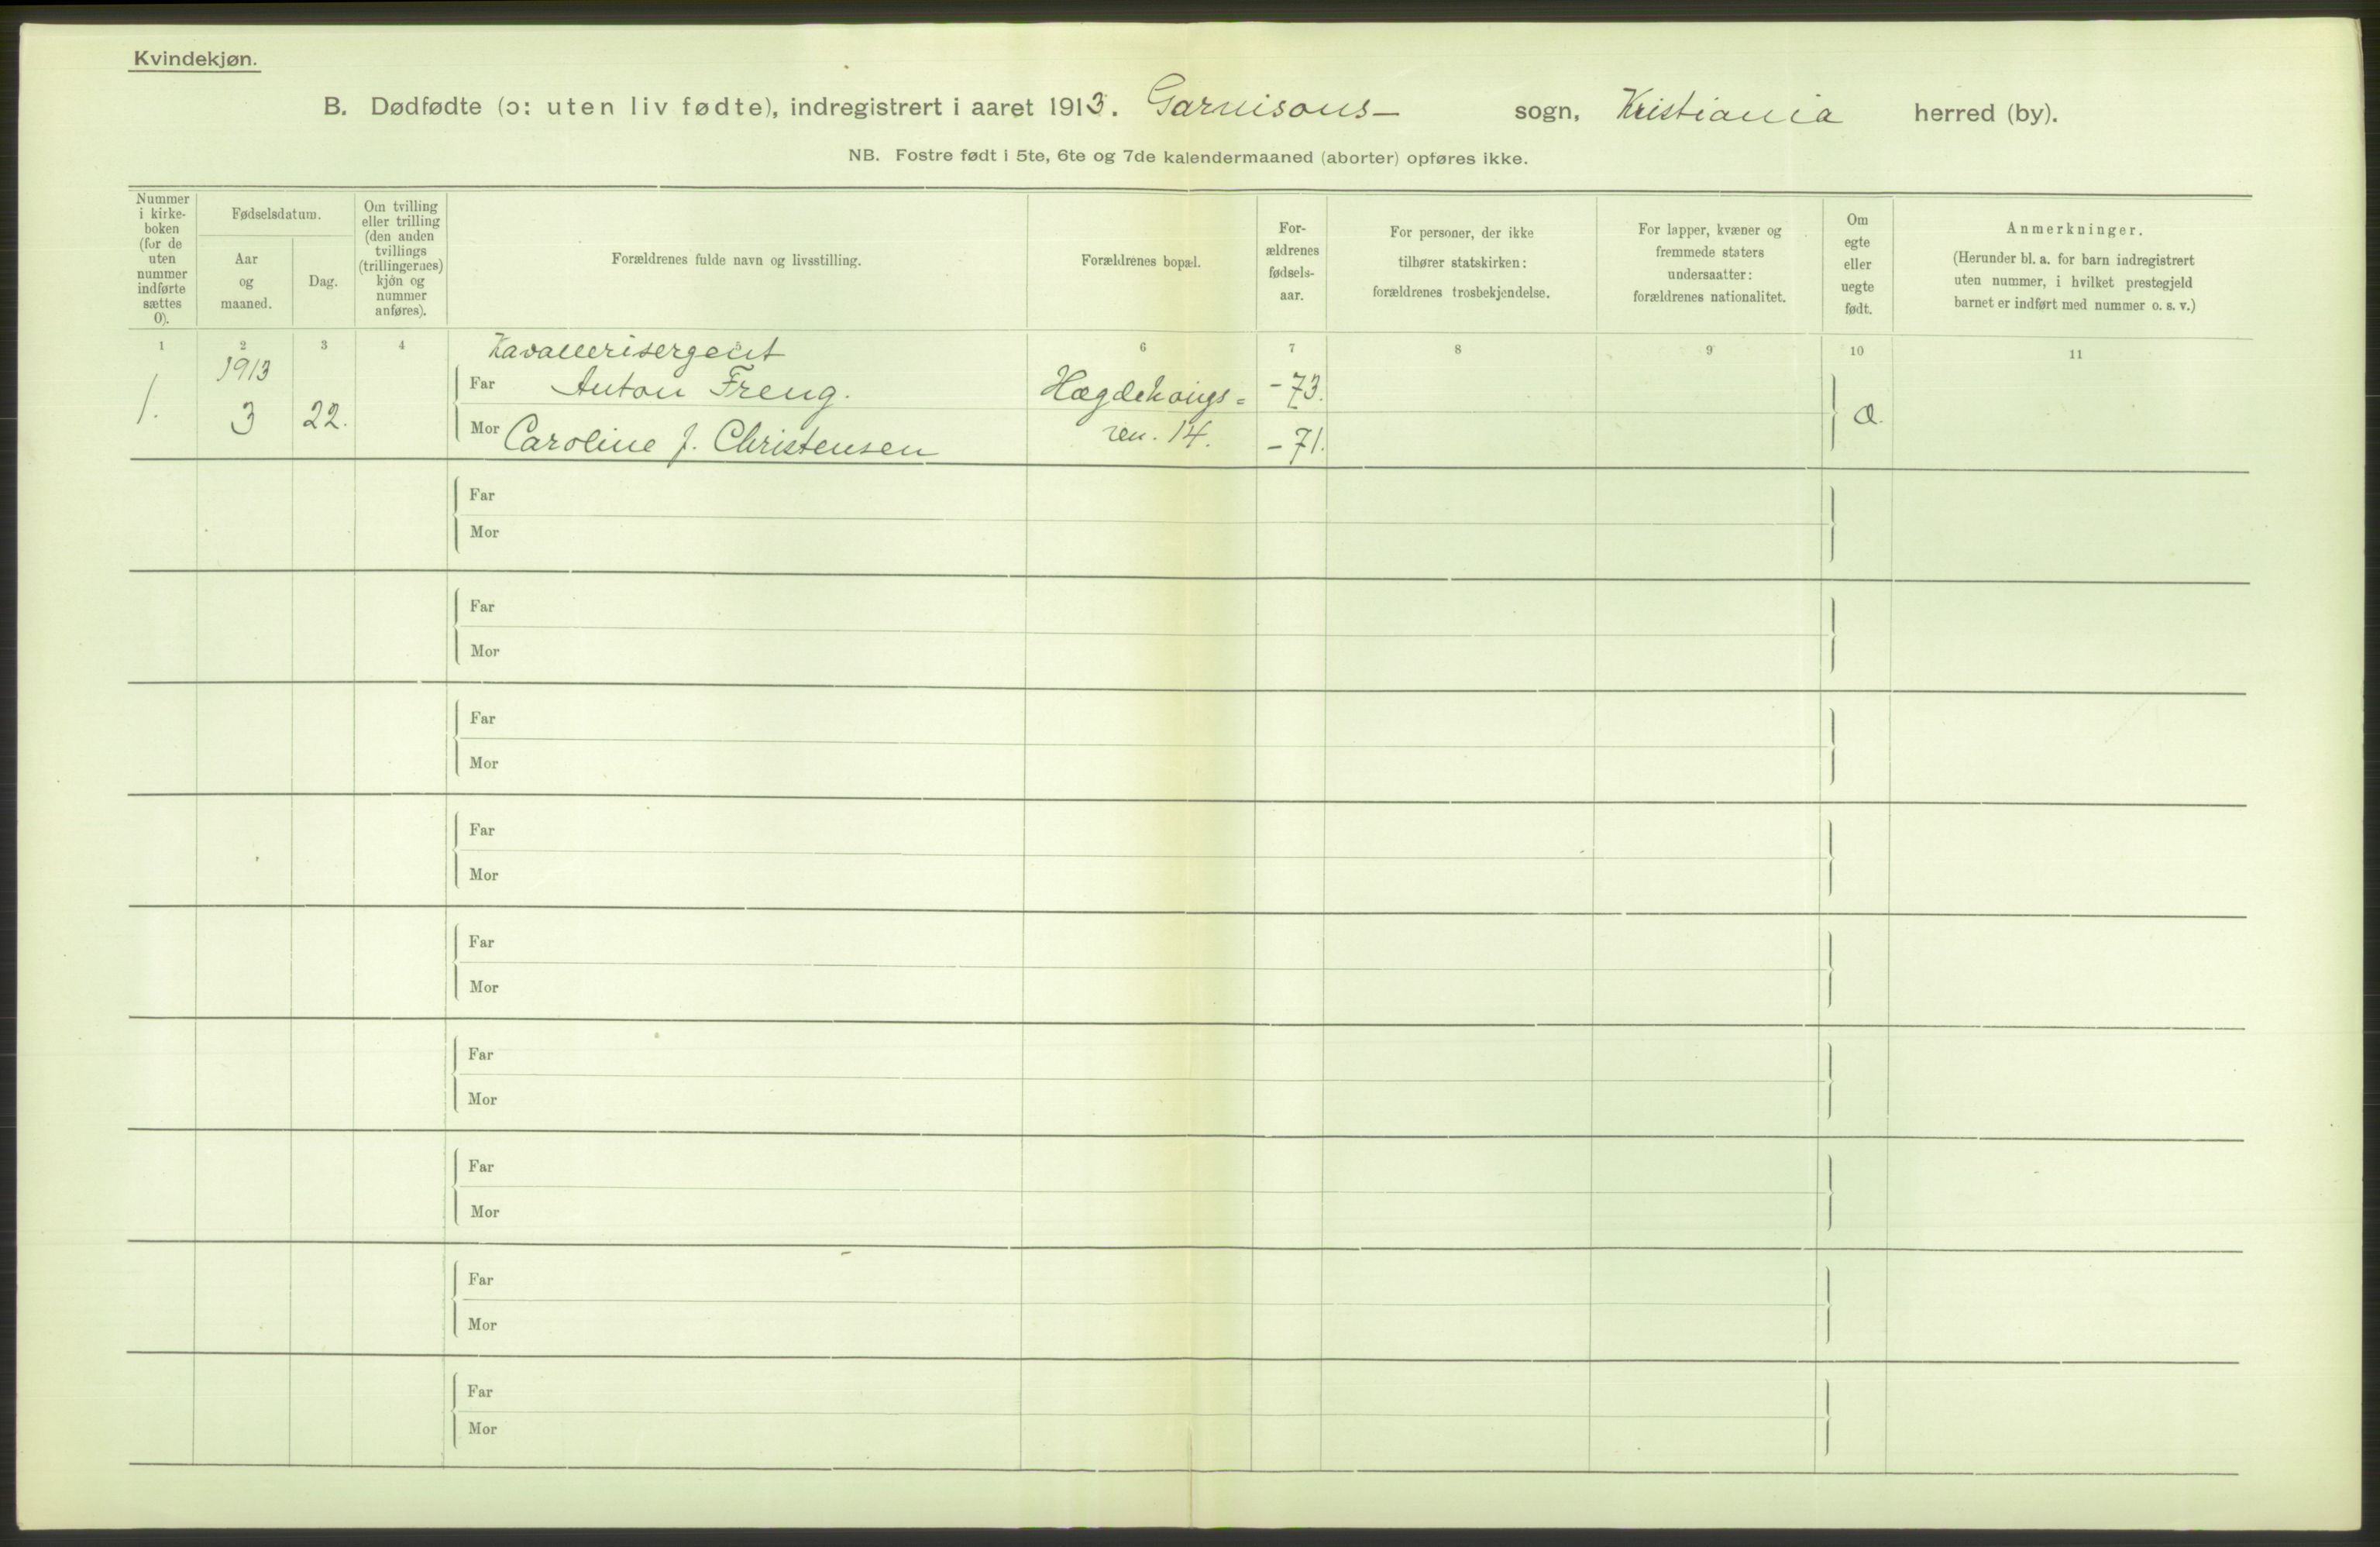 Kvindekjøn.
B. Dødfødte (ɔ: uten liv fødte), indregistrert i aaret 1913. Garnisons- sogn, Kristiania herred (by).
NB. Fostre født i 5te, 6te og 7de kalendermaaned (aborter) opføres ikke.
Nummer
i kirke-
boken
(for de
uten
nummer
indførte
sættes
0).
Fødselsdatum.
Aar
og
maaned.
Dag.
Om tvilling
eller trilling
(den anden
tvillings
(trillingernes)
kjøn og
nummer
anføres).
Forældrenes fulde navn og livsstilling.
Forældrenes bopæl.
For-
ældrenes
fødsels-
aar.
For personer, der ikke
tilhører statskirken:
forældrenes trosbekjendelse.
For lapper, kvæner og
fremmede staters
undersaatter:
forældrenes nationalitet.
Om
egte
eller
uegte
født.
Anmerkninger.
(Herunder bl. a. for barn indregistrert
uten nummer, i hvilket prestegjeld
barnet er indført med nummer o. s. v.)
1 2 3 4 6 7 8 9 10 11
Kavallerisergent
1913
1. 3 22.
Far Anton Freng. Hægdehaugs= -73.
Mor Caroline J. Christensen ven. 14. -71.
Far
Mor
Far
Mor
Far
Mor
Far
Mor
Far
Mor
Far
Mor
Far
Mor
Far
Mor
Far
Mor